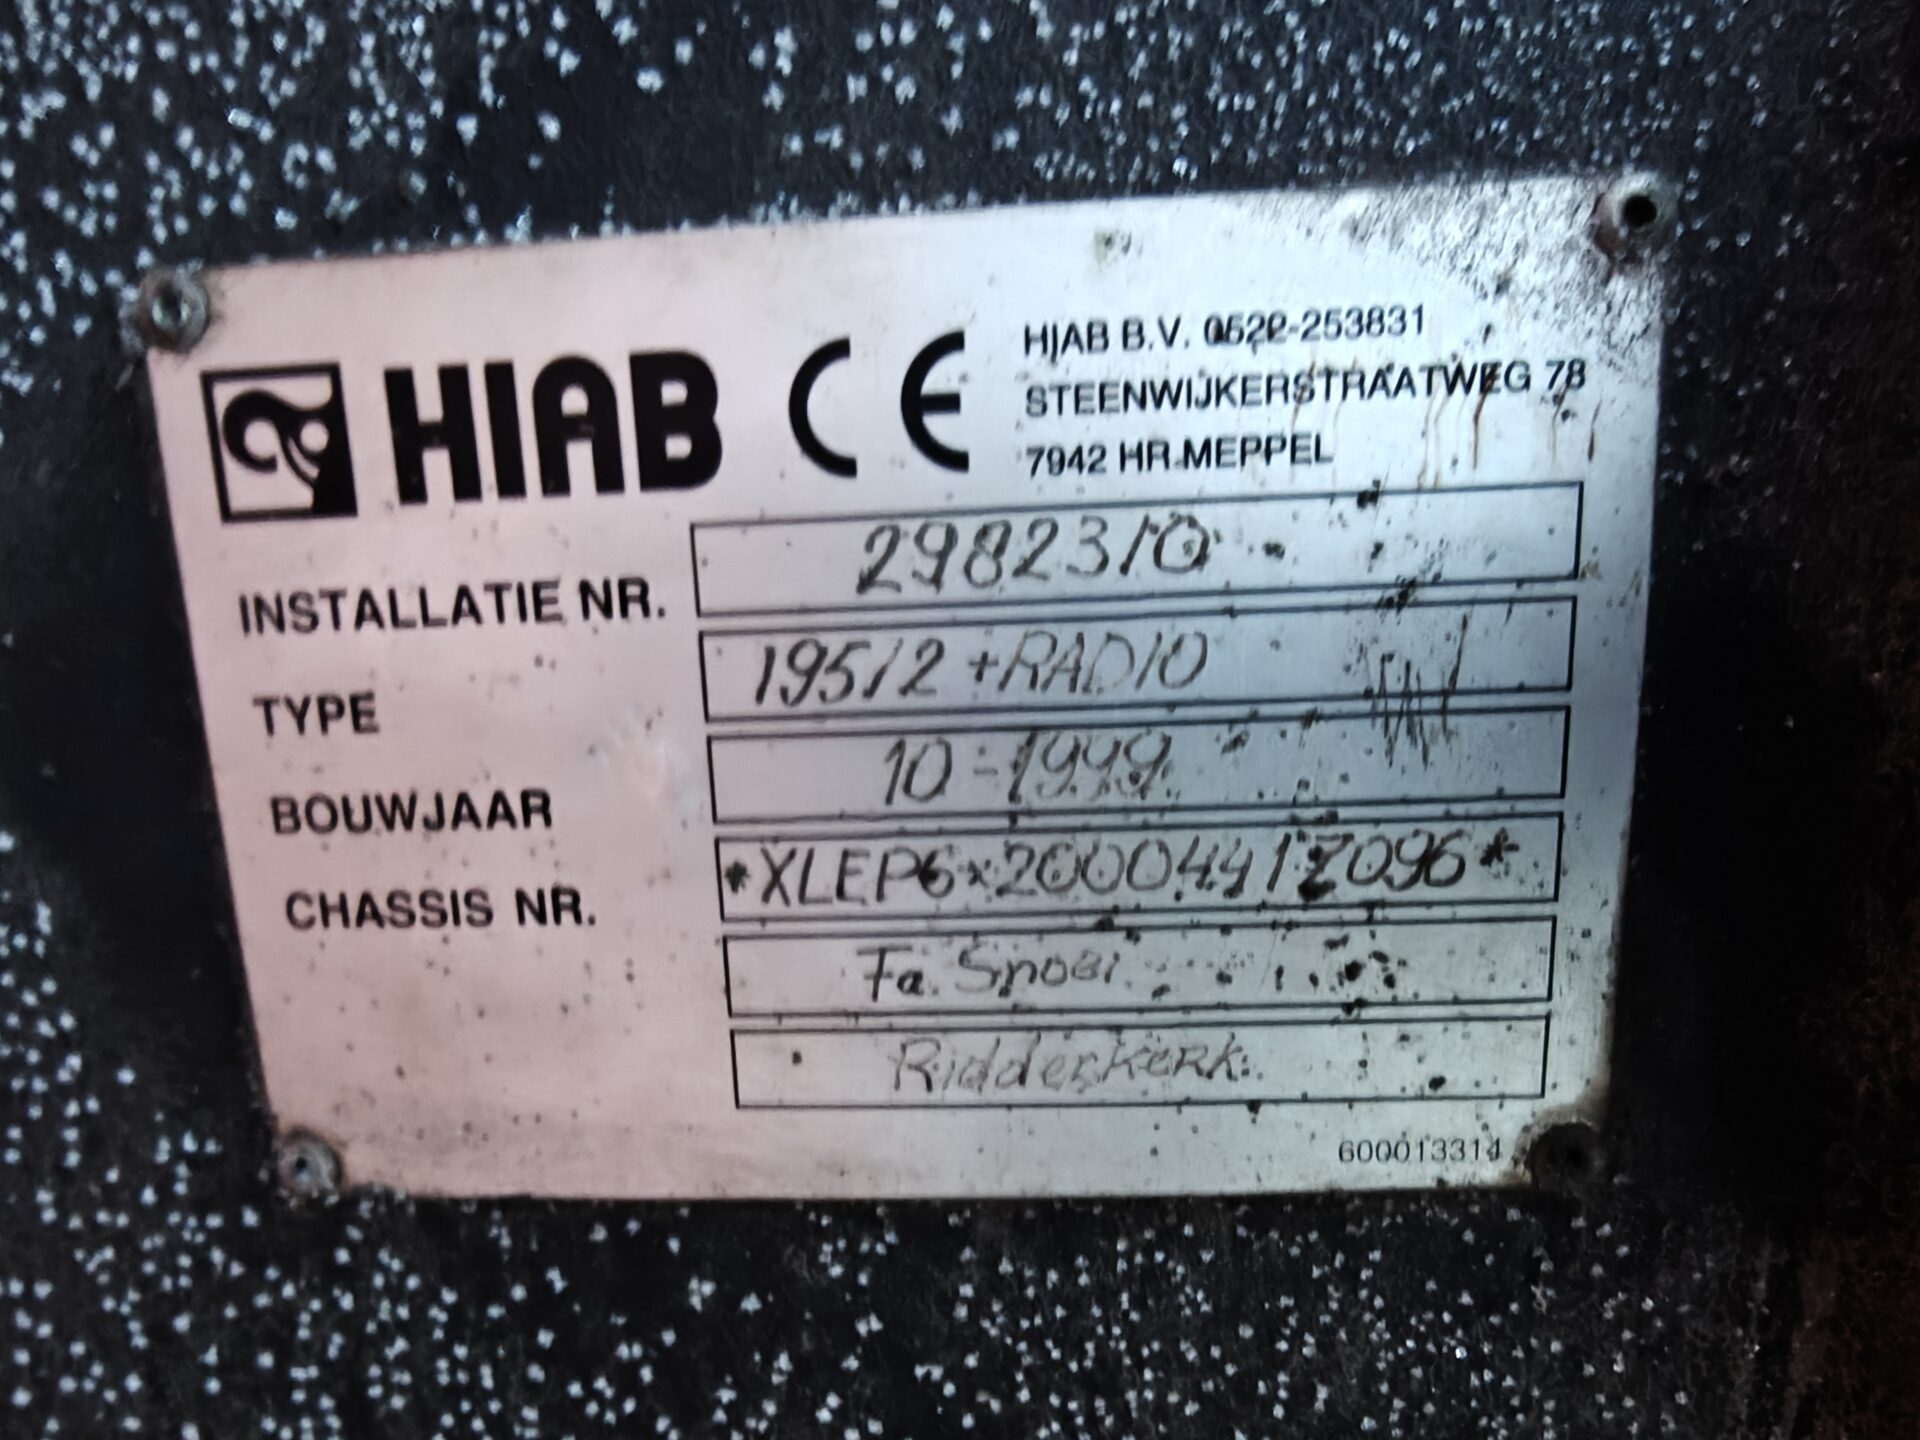 HIAB CE
HIAB B.V. 0522-253831
STEENWIJKERSTRAATWEG 78
7942 HR MEPPEL
INSTALLATIE NR. 2982310
TYPE 195/2 +RADIO
BOUWJAAR 10-1999
CHASSIS NR. *XLEP6x20004417096*
Fa. Snoei
Ridderkerk
600013314